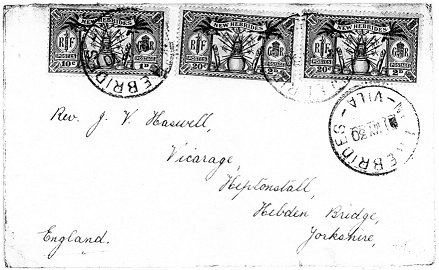 NEW HEBRIDES NEW HEBRIDES NEW HEBRIDES
RF RF RF
POSTES POSTES POSTES
10c 1d 20c 2d
HEBRIDES
VILA - HEBRIDES
Rev. J. V. Haswell,
Vicarage,
Heptonstall,
Hebden Bridge,
England. Yorkshire,